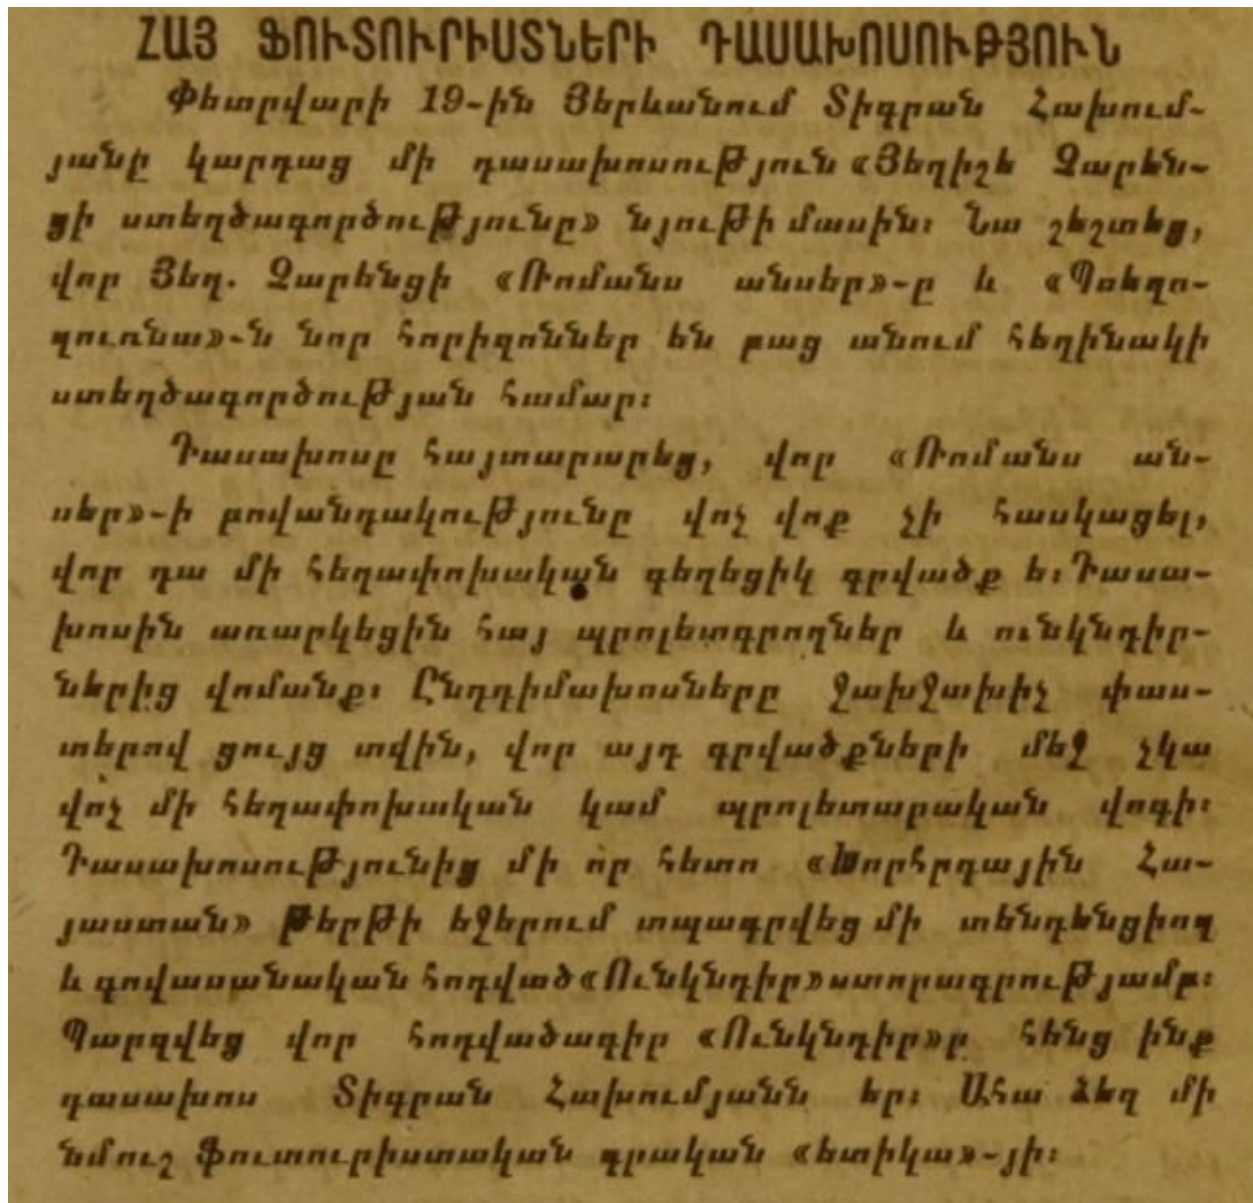 ՀԱՅ ՖՈՒՏՈՒՐԻՍՏՆԵՐԻ ԴԱՍԱԽՈՍՈՒԹՅՈՒՆ
Փետրվարի 19-ին Յերևանում Տիգրան Հախում-
յանը կարդաց մի դասախոսություն «Յեղիշե Չարեն-
ցի ստեղծագործությունը» նյութի մասին։ Նա շեշտեց,
վոր Յեղ. Չարենցի «Ռոմանս անսեր»-ը և «Պոեզո-
զուռնա»-ն նոր հորիզոններ են բաց անում հեղինակի
ստեղծագործության համար։
Դասախոսը հայտարարեց, վոր «Ռոմանս ան-
սեր»-ի բովանդակությունը վոչ վոք չի հասկացել,
վոր դա մի հեղափոխական գեղեցիկ գրվածք ե։ Դասա-
խոսին առարկեցին հայ պրոլետգրողներ և ունկնդիր-
ներից վոմանք։ Ընդդիմախոսները ջախջախիչ փաս-
տերով ցույց տվին, վոր այդ գրվածքների մեջ չկա
վոչ մի հեղափոխական կամ պրոլետարական վոգի։
Դասախոսությունից մի որ հետո «Խորհրդային Հա-
յաստան» թերթի եջերում տպագրվեց մի տենդենցիոզ
և գովասանական հոդված «Ունկնդիր» ստորագրությամբ։
Պարզվեց վոր հոդվածագիր «Ունկնդիր»ը հենց ինք
դասախոս Տիգրան Հախումյանն եր։ Ահա ձեզ մի
նմուշ ֆուտուրիստական գրական «ետիկա»-յի։